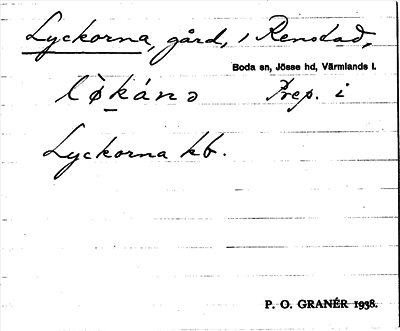 Lyckorna, gård, i Renstad,
Boda sn, Jösse hd, Värmlands l.
lø̀kánə Prep. i
Lyckorna kb.
P. O. GRANÉR 1938.